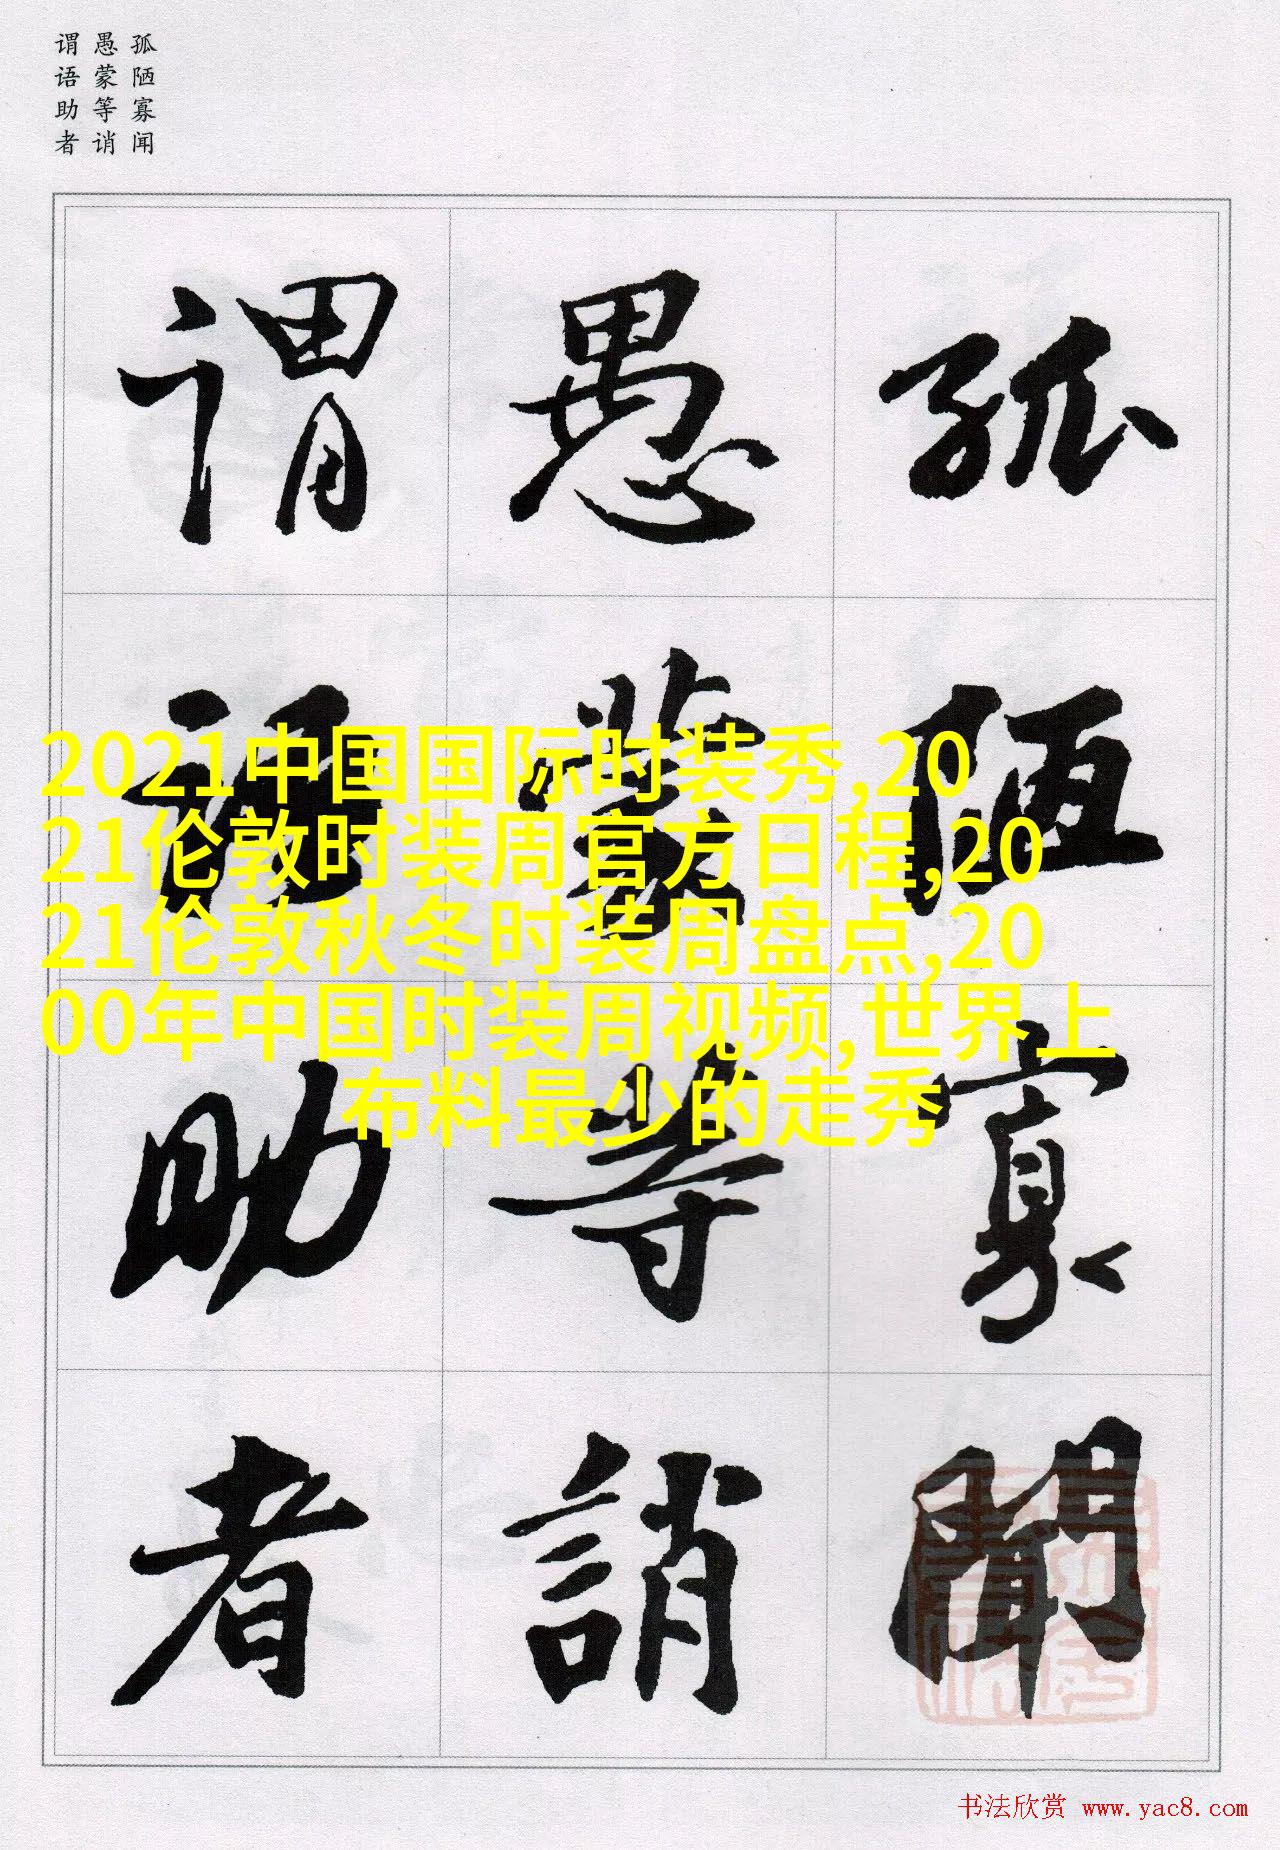 孤陋寡闻
愚蒙等诮
谓语助者
孤陋寡聞
愚蒙等誚
謂語助者
2021中国国际时装秀,20
21伦敦时装周官方日程,20
21伦敦秋冬时装周盘点,20
00年中国时装周视频,世界上
布料最少的走秀
书法欣赏 www.yac8.com